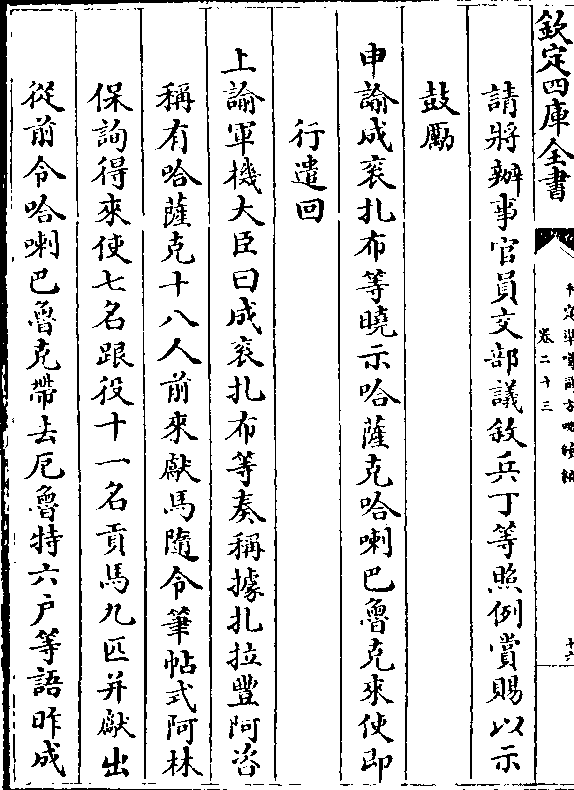 欽定四庫全書
平定準噶爾方略續編
卷二十三
十六
請將辦事官員交部議敘兵丁等照例賞賜以示
鼓勵
申諭成衮扎布等曉示哈薩克哈喇巴魯克來使即
行遣回
上諭軍機大臣曰成衮扎布等奏稱據扎拉豐阿咨
稱有哈薩克十八人前來獻馬隨令筆帖式阿林
保詢得來使七名跟役十一名貢馬九匹并獻出
從前令哈喇巴魯克帶去厄魯特六户等語昨成